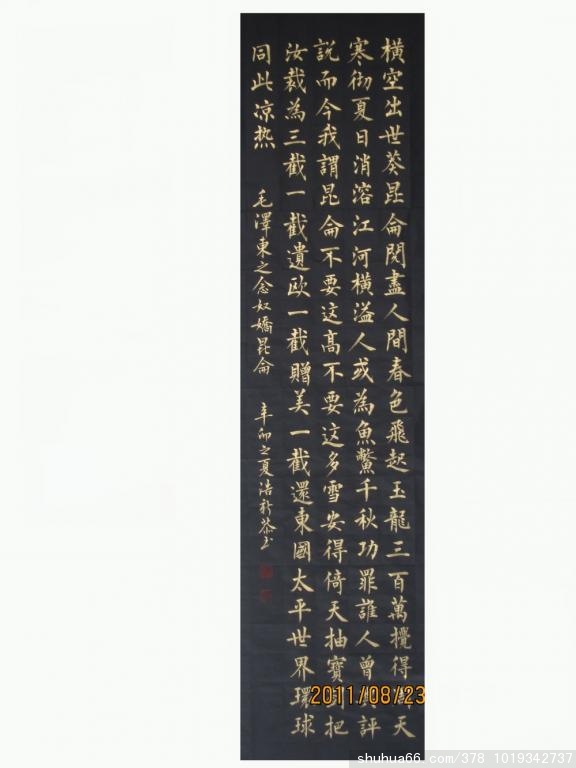 橫空出世莽昆侖閱盡人間春色飛起玉龍三百萬攪得天
寒彻夏日消溶江河橫溢人或為魚鱉千秋功罪誰人曾評
說而今我謂昆侖不要这高不要这多雪安得倚天抽寶把
汝裁為三截一截遺欧一截贈美一截還東國太平世界環球
同此凉热 毛澤東之念奴嬌昆侖 辛卯之夏浩新恭书
2011/08/23
shuhua66.com/378_1019342737